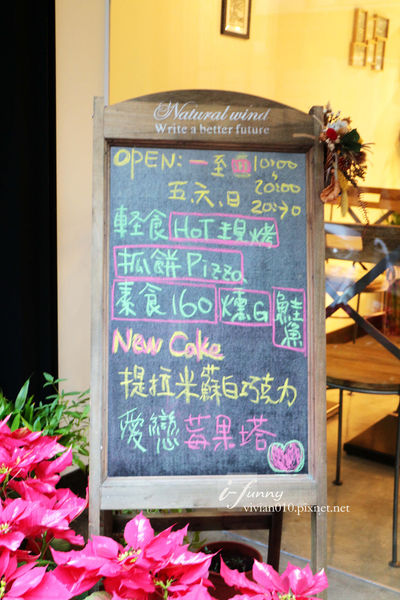 Natural wind
Write a better future
OPEN: 一至四 10:00
~
20:00
五.六.日 20:30
輕食 HOT現烤
抓餅 Pizza
素食160 燻G 鮭魚
New Cake
提拉米蘇白巧克力
愛戀莓果塔
i-funny
vivian010.pixnet.net